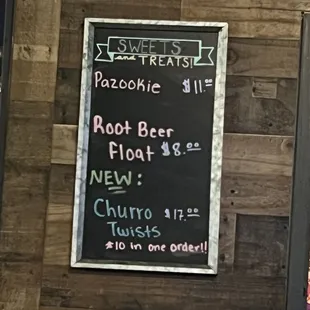 SWEETS
and TREATS!
Pazookie $11.00
Root Beer
Float $8.00
NEW:
Churro $17.00
Twists
*10 in one order!!